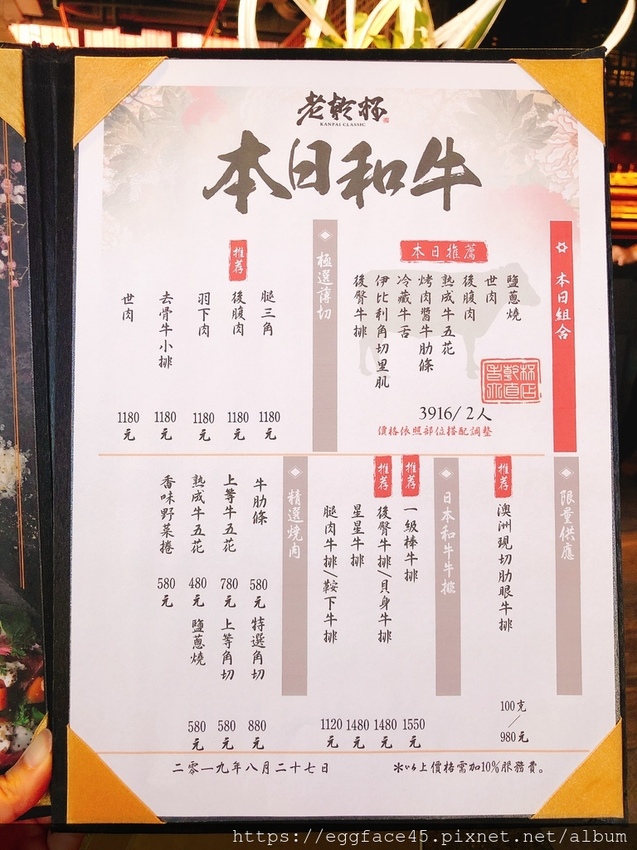 老乾杯
KANPAI CLASSIC
本日和牛
本日組合
本日推薦
鹽蔥燒
世肉
後腹肉
熟成牛五花
烤肉醬牛肋條
冷藏牛舌
伊比利角切里肌
後臀牛排
3916/2人
價格依照部位搭配調整
極選薄切
腿三角 1180元
推荐 後腹肉 1180元
羽下肉 1180元
去骨牛小排 1180元
世肉 1180元
限量供應
推荐 澳洲現切肋眼牛排 100克/980元
日本和牛牛排
推荐 一級棒牛排 1550元
推荐 後臀牛排/貝身牛排 1480元
星星牛排 1480元
腿肉牛排/鞍下牛排 1120元
精選燒肉
牛肋條 580元
特選角切 880元
上等牛五花 780元
上等角切 580元
熟成牛五花 480元
鹽蔥燒 580元
香味野菜捲 580元
※以上價格需加10%服務費。
二零一九年八月二十七日
https://eggface45.pixnet.net/album